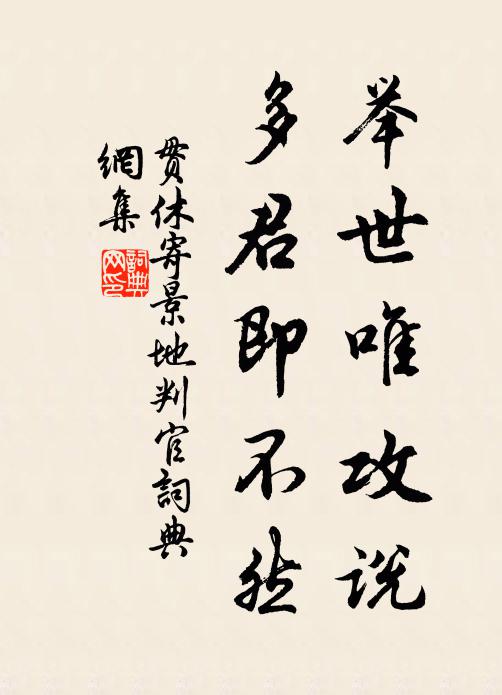 举世唯攻说
多君即不然
贯休寄景地判官詞典
網集
詞典
网印